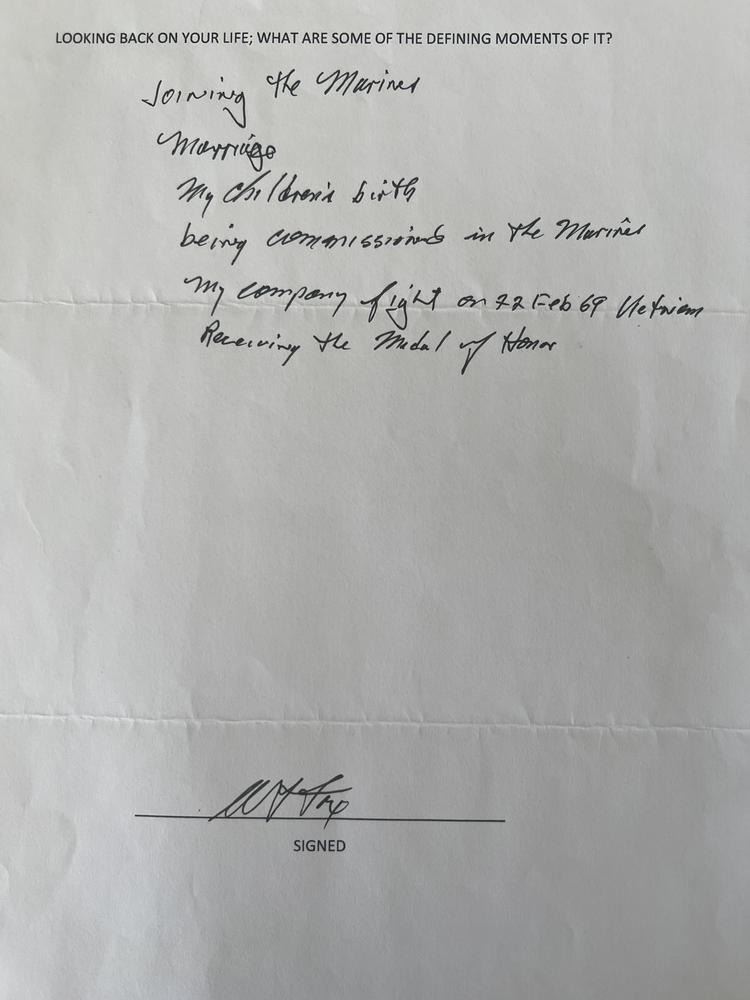 LOOKING BACK ON YOUR LIFE; WHAT ARE SOME OF THE DEFINING MOMENTS OF IT?
Joining the Marines
Marriage
My children's birth
being commissioned in the Marines
My company fight on 22 Feb 69 Vietnam
Receiving the Medal of Honor
W Fox
SIGNED